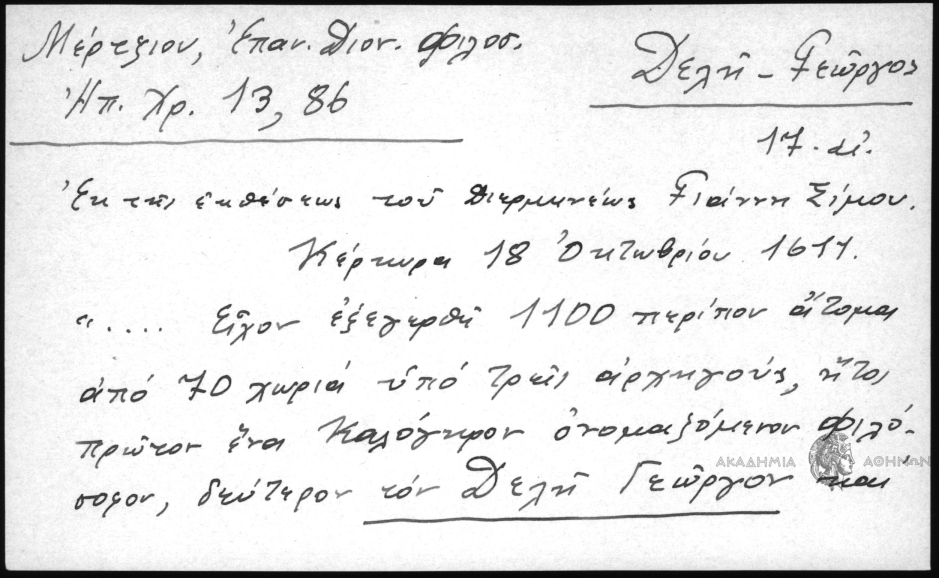 Μέρτζιου, Ἐπαν. Διον. Φιλοσ.
Ἠπ. Χρ. 13, 86
Δελῆ - Γεῶργος
17. αἰ.
Ἐκ τῆς ἐκθέσεως τοῦ διερμηνέως Γιάννη Σίμου.
Κέρκυρα 18 Ὀκτωβρίου 1611.
".... Εἶχον ἐξεγερθῆ 1100 περίπου ἄτομα
ἀπό 70 χωριά ὑπό τρεῖς ἀρχηγούς, ἤτοι
πρῶτον ἕνα Καλόγηρον ὀνομαζόμενον Φιλό-
σοφον, δεύτερον τόν Δελῆ Γεῶργον καί
ΑΚΑΔΗΜΙΑ ΑΘΗΝΩΝ